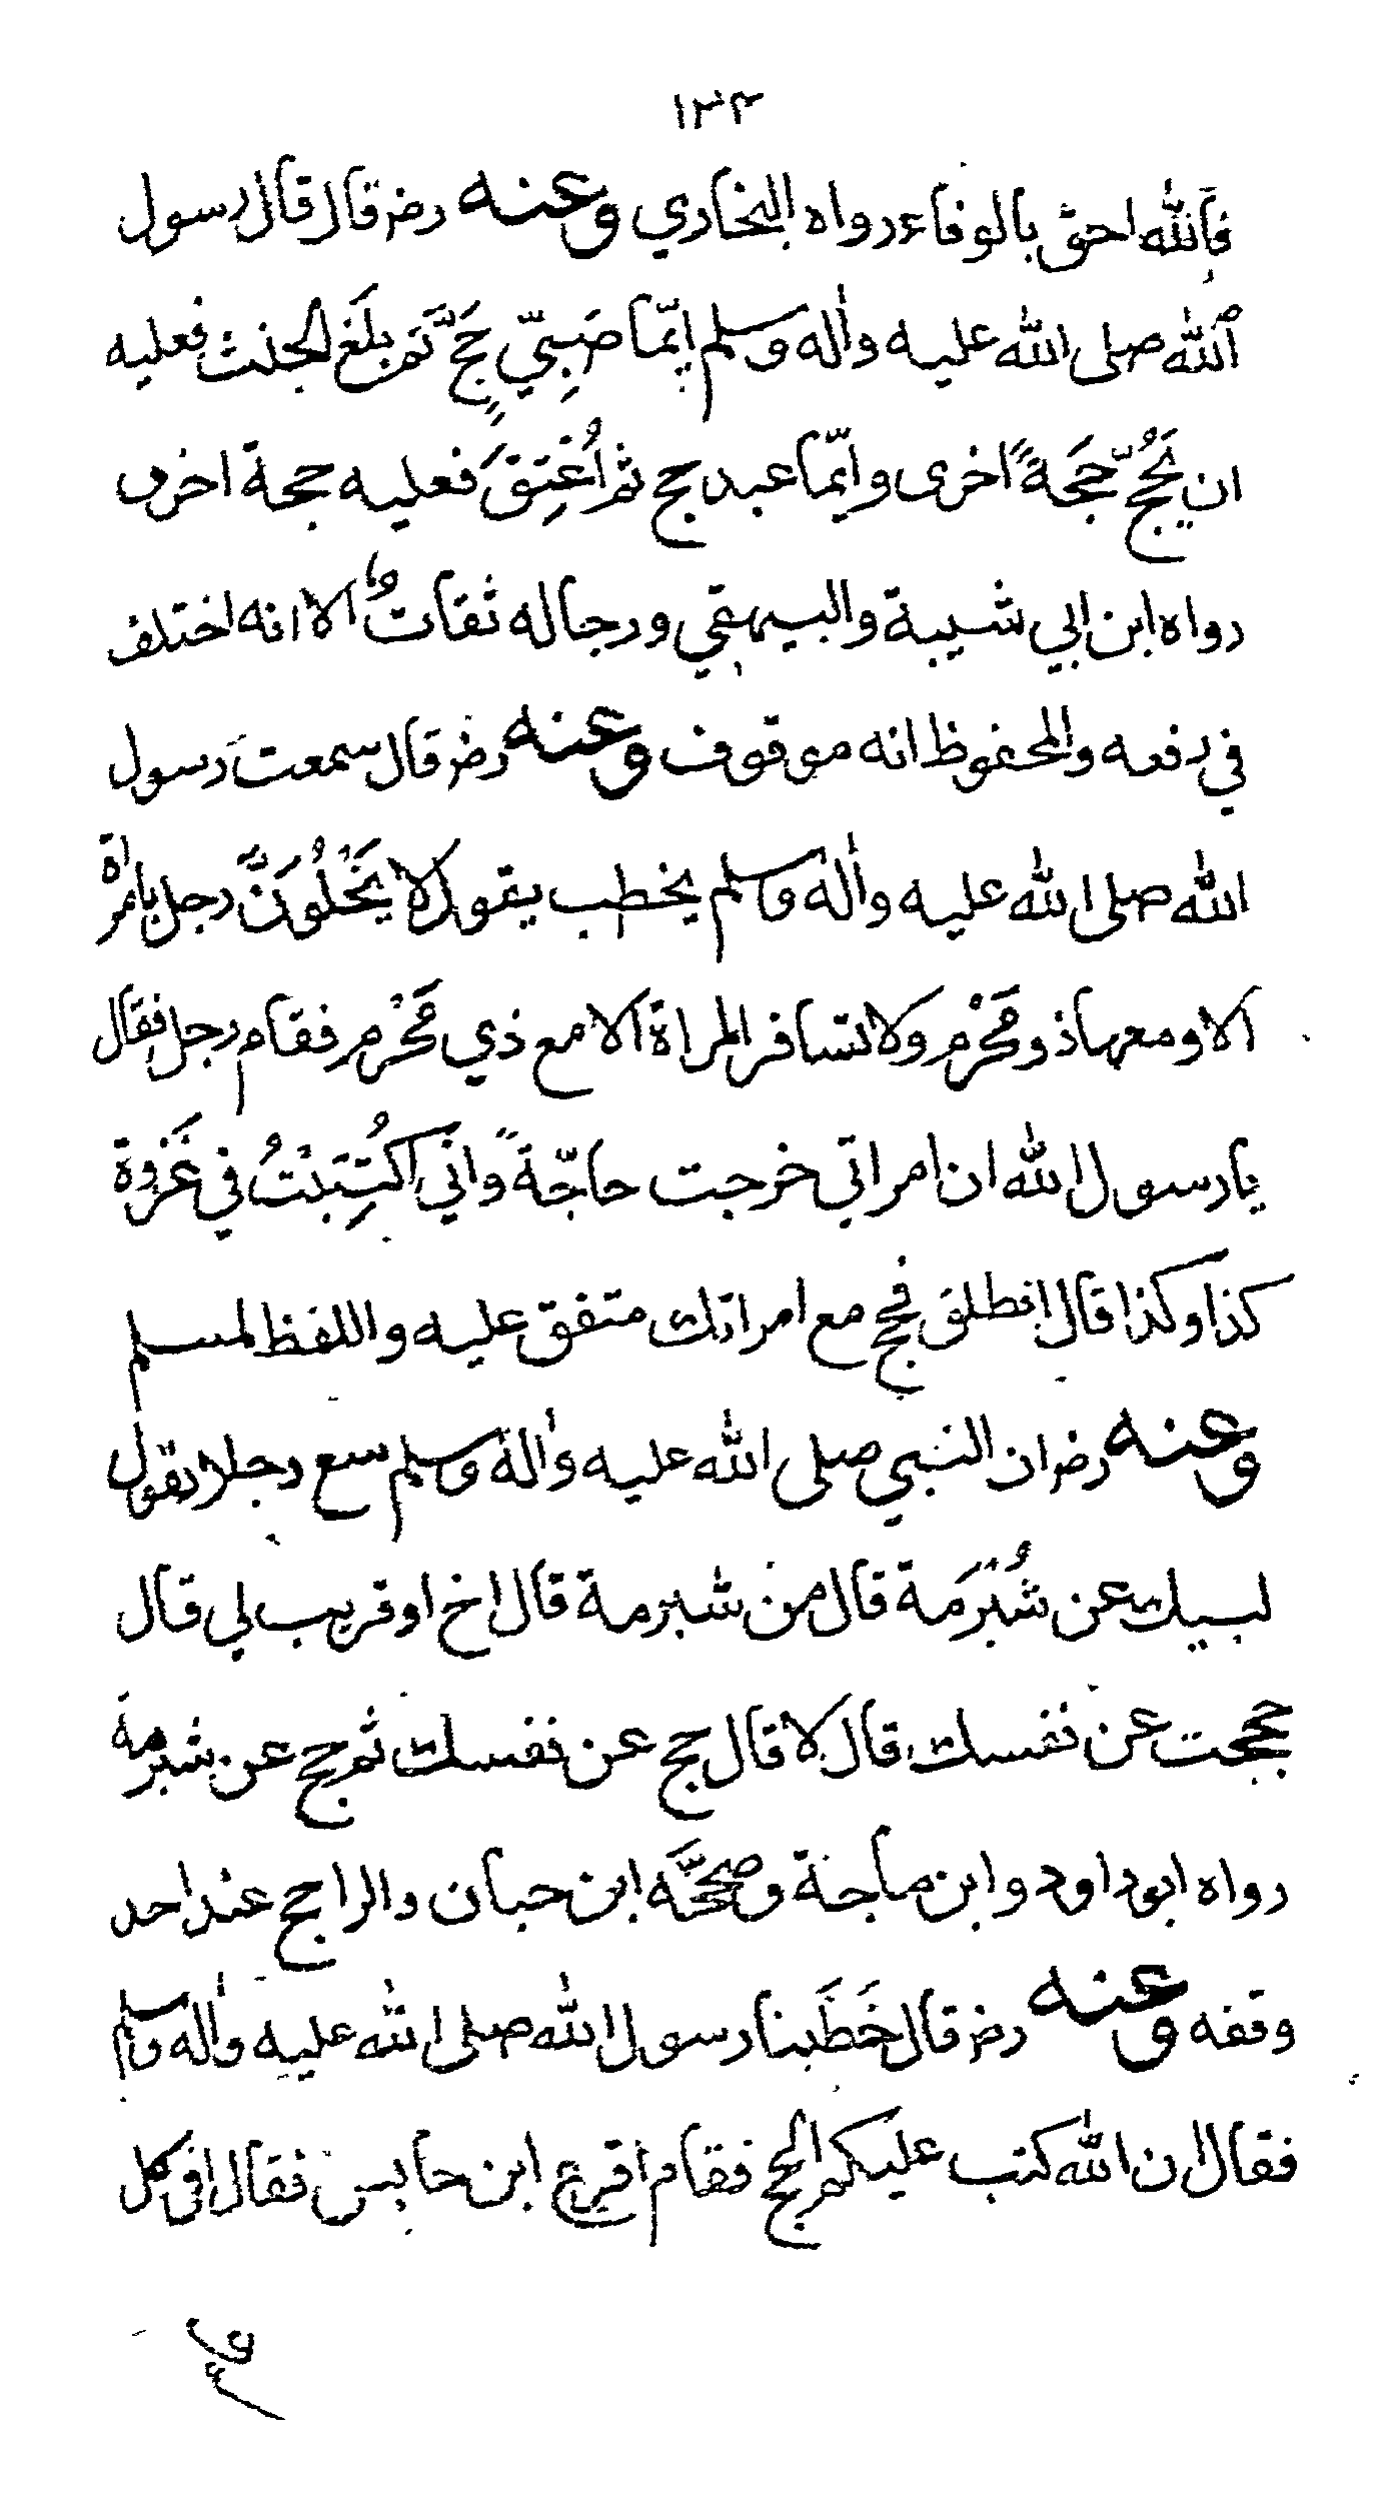 ١٣٤
فَاللّٰه احقّ بالوفاء رواه البخاري وعنه رض قال قال رسول
اللّٰه صلى اللّٰه عليه واٰله وسلم ايّما صَبِيّ حَجَّ ثم بلَغ الحنث فعليه
ان يَحُجّ حَجَةً اخرى وايّما عبد حج ثم اُعْتِقَ فعليه حجة اخرى
رواه ابن ابي شيبة والبيهقي ورجاله ثقات الا انه اختلف
في رفعه والمحفوظ انه موقوف وعنه رض قال سمعت رَسول
اللّٰه صلى اللّٰه عليه واٰله وسلم يخطب يقول لا يَخْلُوَنَّ رجل بامراة
الا ومعها ذو مَحْرَم ولا تسافر المراة الا مع ذي مَحْرَم فقام رجل فقال
يا رسول اللّٰه ان امراتي خرجت حاجّةً واني اكتُتِبْتُ في غَزوة
كذا وكذا قال انطلق فحُج مع امراتك متفق عليه واللفظ لمسلم
وعنه رض ان النبي صلى اللّٰه عليه واٰله وسلم سمع رجلا يقول
لبيك عن شُبْرَمَة قال من شبرمة قال اخ او قريب لي قال
حججت عن نفسك قال لا قال حج عن نفسك ثم حج عن شبرمة
رواه ابو داود وابن ماجة وصحَّحَه ابن حبان والراجح عند احد
وقفه وعنه رض قال خَطَبَنا رسول اللّٰه صلى اللّٰه عليه واٰله وسلم
فقال ان اللّٰه كتب عليكم الحج فقام اقرع ابن حابس فقال افي كل